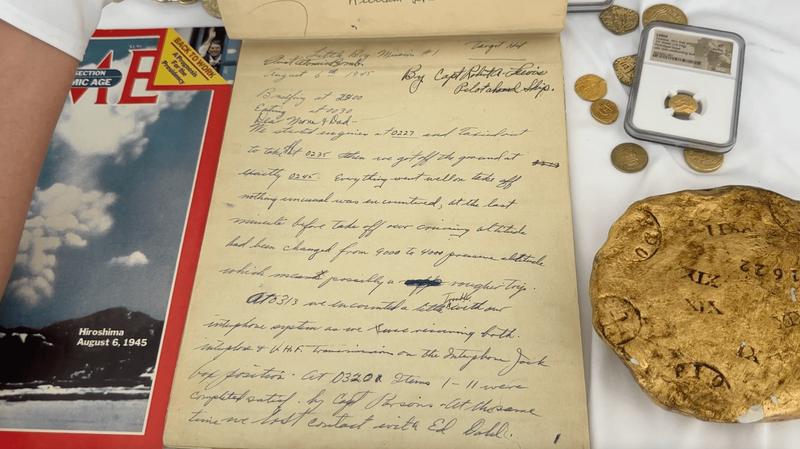 BACK TO WORK
A Prognosis
For the
Presidency
SECTION
MIC AGE
ME
Hiroshima
August 6, 1945
Little Boy Mission #1
Target Hit
First Atomic Bomb
August 6th 1945
By Capt Robert A. Lewis
Pilot of and Ship.
Briefing at 2400
Eating at 0030
Dear Mom & Dad-
We started engines at 0227 and taxied out
to take off 0235 then we got off the ground at
exactly 0245. Everything went well on take off
nothing unusual was encountered, at the last
minute before take off our cruising altitude
had been changed from 9000 to 4000 pressure altitude
which meant possibly a rougher trip.
At 0313 we encounted a little Trouble with our
interphone system as we were receiving both
interphone & V.H.F. Transmission on the Interphone Jack
box position. At 0320 Items 1-11 were
completed satisf. by Capt Parsons. At the same
time we lost contact with Ed
1
1622
XIX
XIX